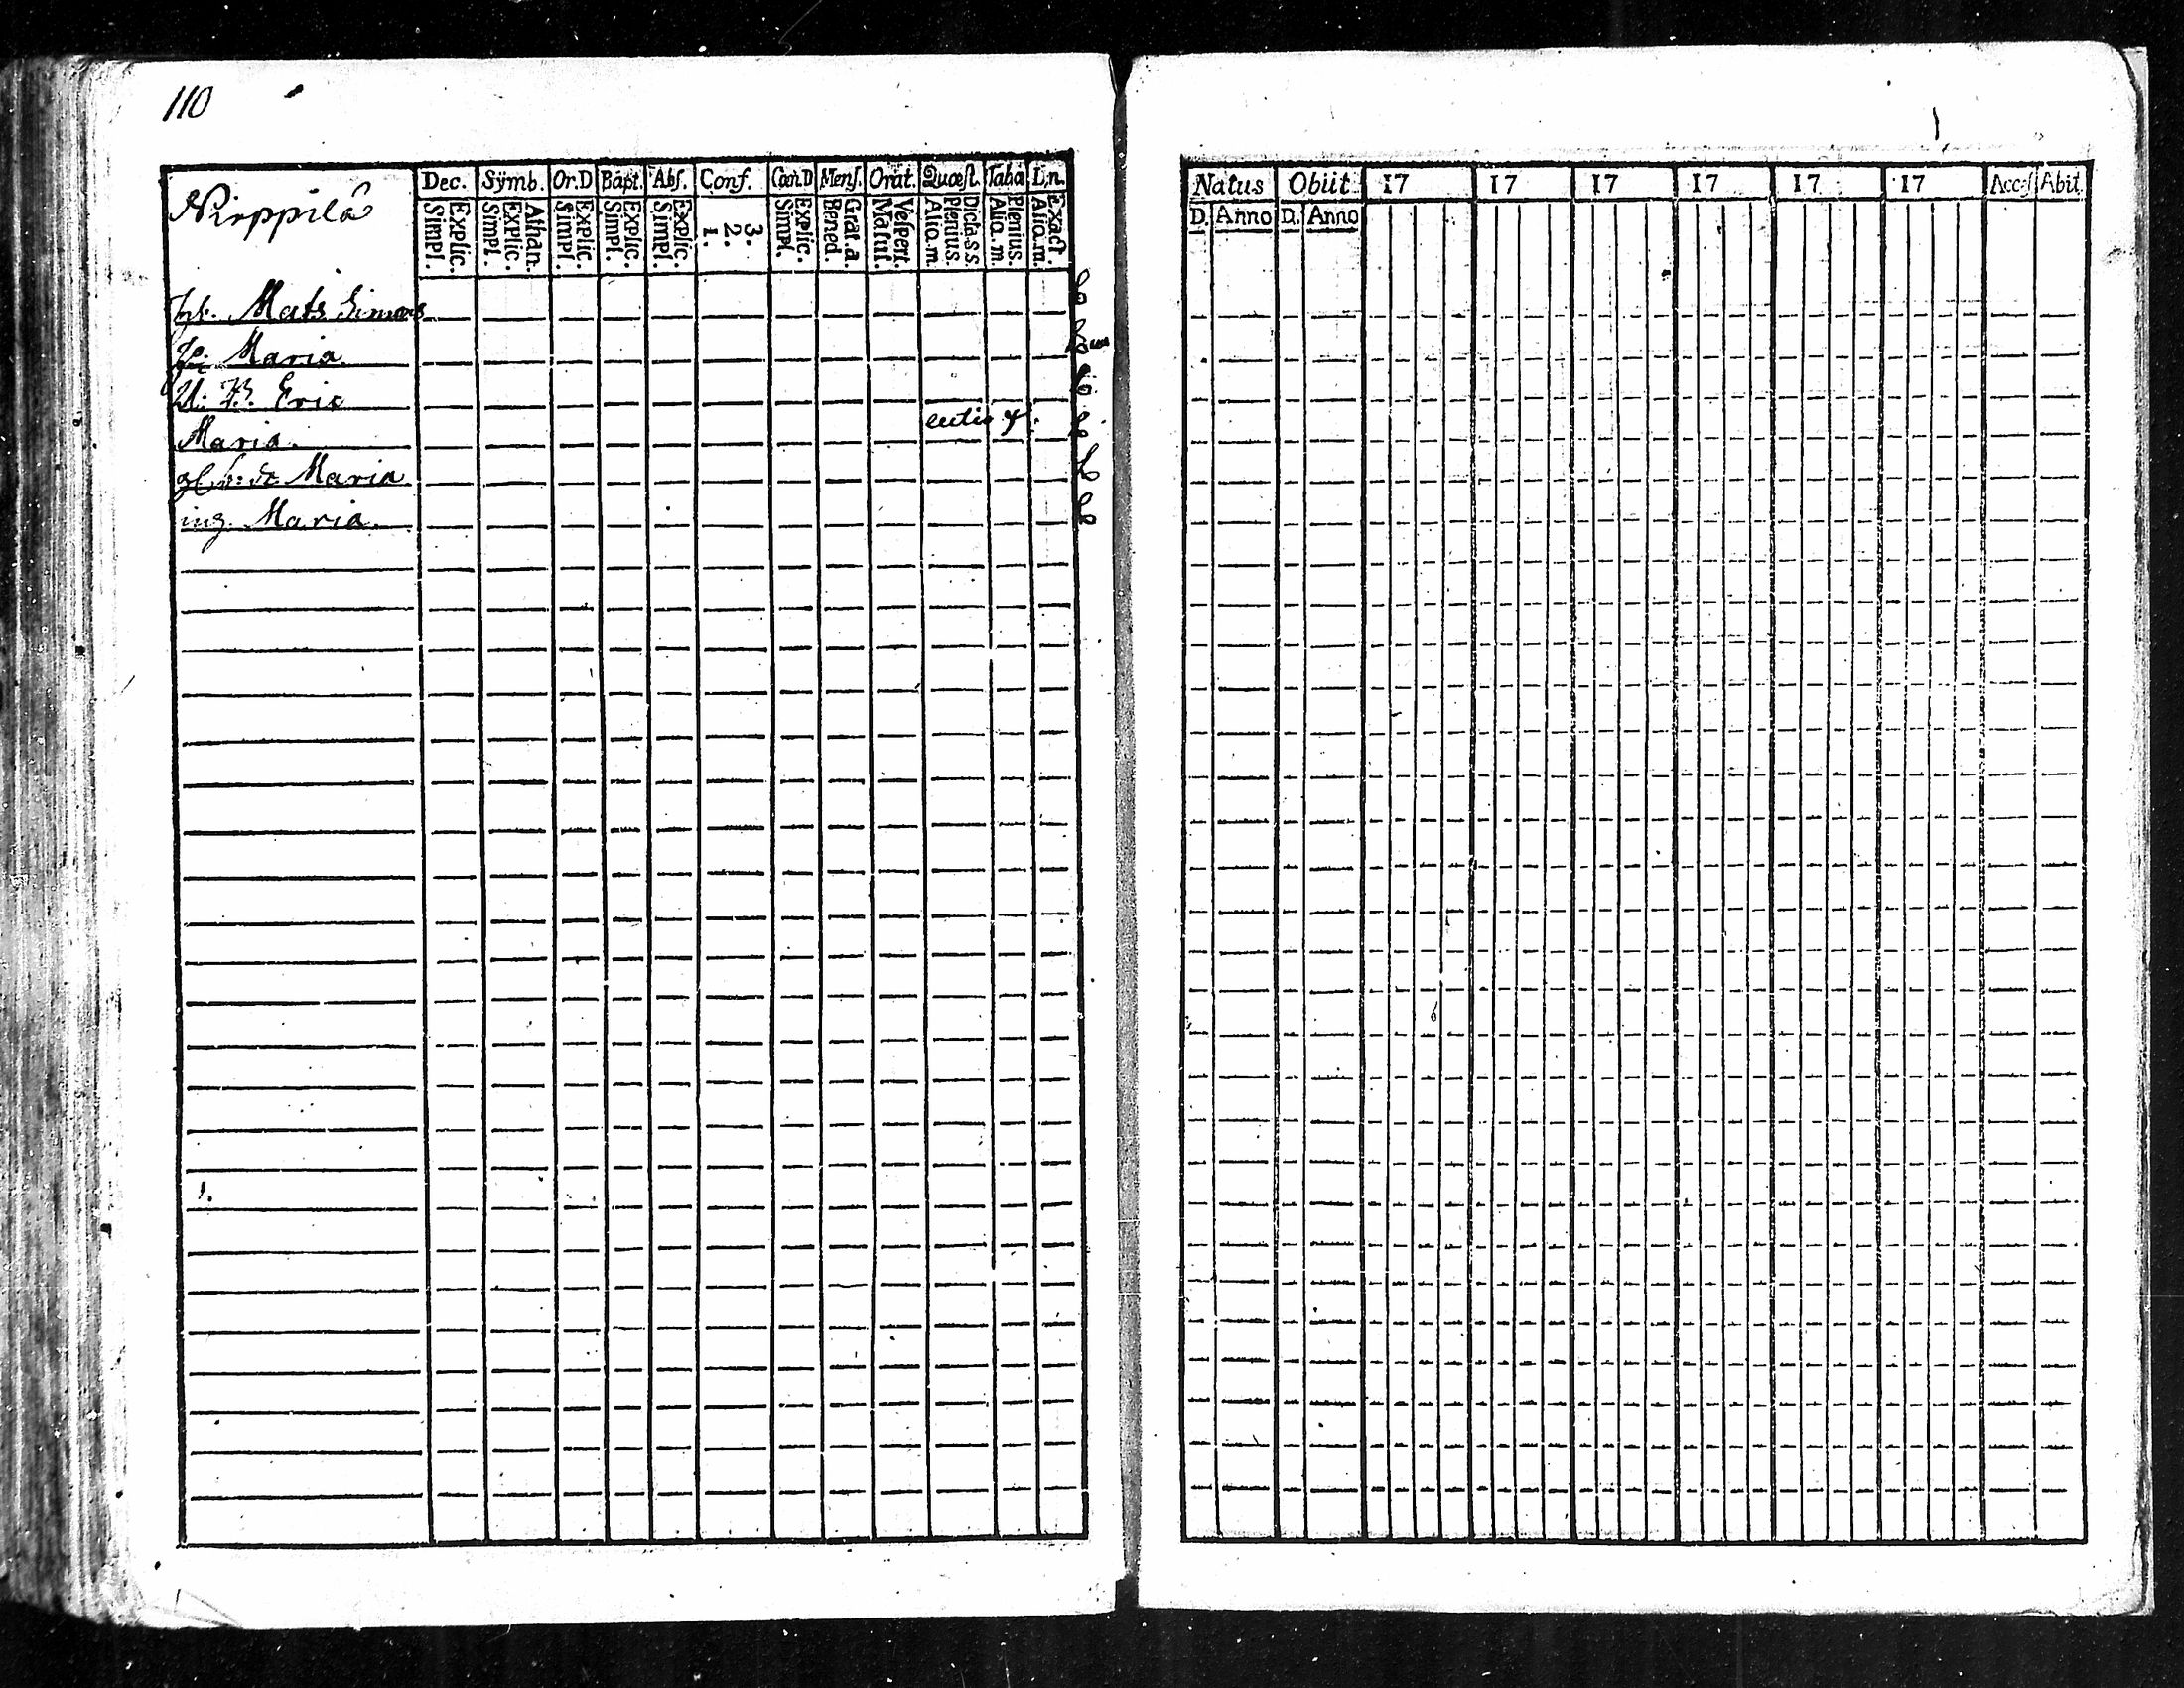 110
Nirppilä
Dec. Sÿmb. Or.D Bapt. Abſ. Conf. Cœn.D Menſ. Orat. Quæſt. Taba L.n.
Simpl. Explic. Simpl. Explic. Athan. Simpl. Explic. Simpl. Explic. Simpl. Explic. 1. 2. 3. Simpl. Explic. Bened. Grat. a. Matut. Veſpert. Aliq.m. Plenius. Dicta s.s. Aliq.m. Plenius. Aliq.m. Exact.
Mats Simons
Maria
Eric
Maria.
Maria
ing. Maria.
Natus Obiit 17 17 17 17 17 17 Acceſ Abit
D. Anno D. Anno